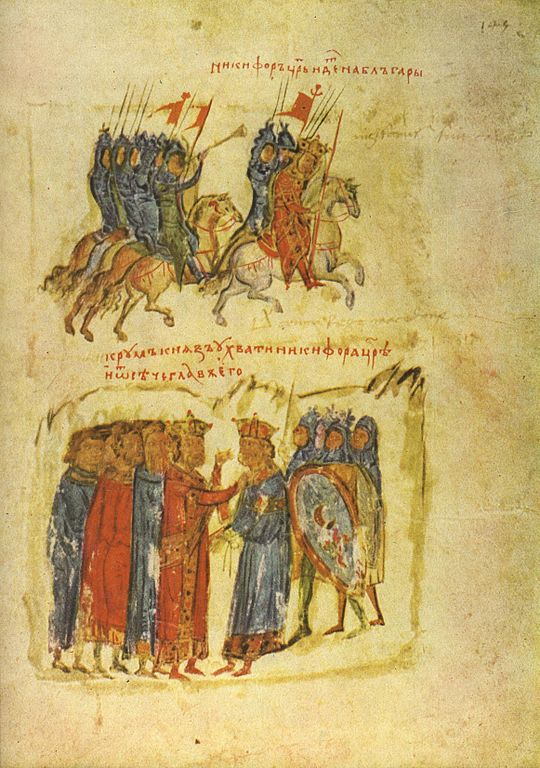 никифоръ цр҃ь иде на блъгары
крумъ кнѧзъ ухвати никифора цр҃ѣ
и ѿсѣче главѫ его